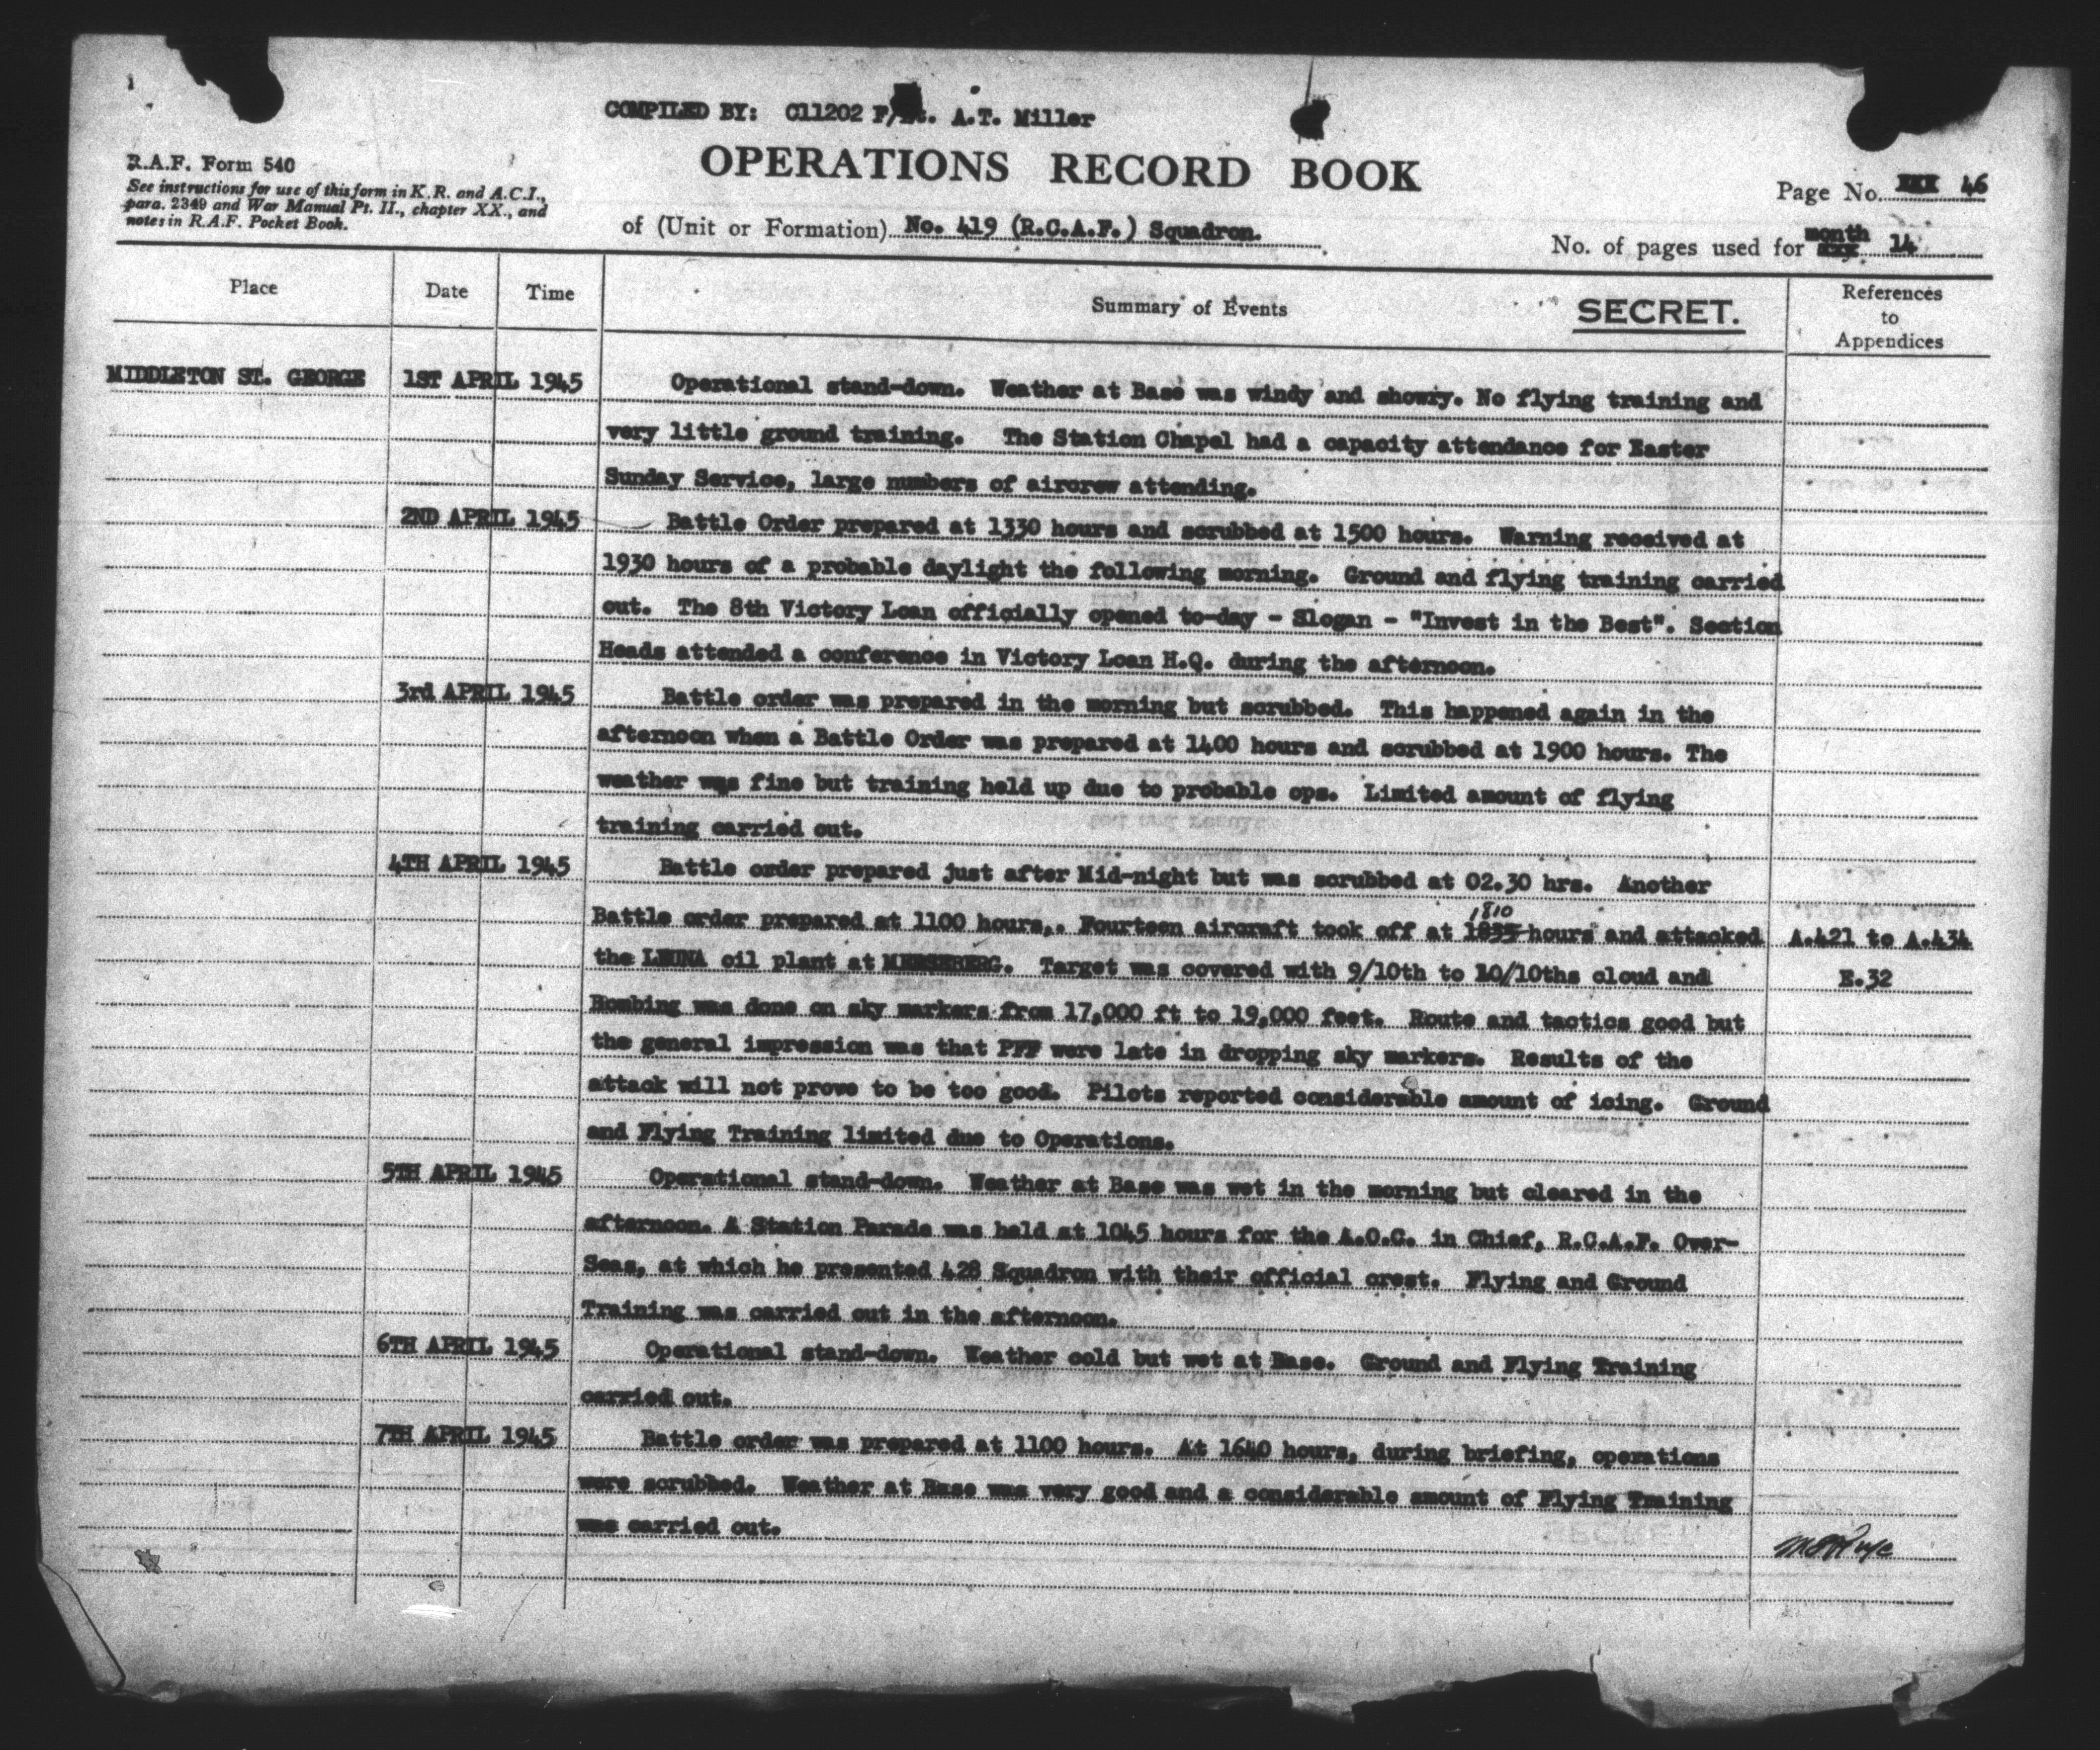 COMPILED BY: C11202 F/Lt. A.T. Miller
R.A.F. Form 540
See instructions for use of this form in K.R. and A.C.I.,
para. 2349 and War Manual Pt. II., chapter XX., and
notes in R.A.F. Pocket Book.
OPERATIONS RECORD BOOK
of (Unit or Formation) No. 419 (R.C.A.F.) Squadron.
Page No. 46
No. of pages used for month 14
Place Date Time Summary of Events SECRET. References to Appendices
MIDDLETON ST. GEORGE 1ST APRIL 1945 Operational stand-down. Weather at Base was windy and showry. No flying training and
very little ground training. The Station Chapel had a capacity attendance for Easter
Sunday Service, large numbers of aircrew attending.
2ND APRIL 1945 Battle Order prepared at 1330 hours and scrubbed at 1500 hours. Warning received at
1930 hours of a probable daylight the following morning. Ground and flying training carried
out. The 8th Victory Loan officially opened to-day - Slogan - "Invest in the Best". Section
Heads attended a conference in Victory Loan H.Q. during the afternoon.
3rd APRIL 1945 Battle order was prepared in the morning but scrubbed. This happened again in the
afternoon when a Battle Order was prepared at 1400 hours and scrubbed at 1900 hours. The
weather was fine but training held up due to probable ops. Limited amount of flying
training carried out.
4TH APRIL 1945 Battle order prepared just after Mid-night but was scrubbed at 02.30 hrs. Another
Battle order prepared at 1100 hours,. Fourteen aircraft took off at 1835 1810 hours and attacked A.421 to A.434
the LEUNA oil plant at MERSEBERG. Target was covered with 9/10th to 10/10ths cloud and E.32
Bombing was done on sky markers from 17,000 ft to 19,000 feet. Route and tactics good but
the general impression was that PFF were late in dropping sky markers. Results of the
attack will not prove to be too good. Pilots reported considerable amount of icing. Ground
and Flying Training limited due to Operations.
5TH APRIL 1945 Operational stand-down. Weather at Base was wet in the morning but cleared in the
afternoon. A Station Parade was held at 1045 hours for the A.O.C. in Chief, R.C.A.F. Over-
Seas, at which he presented 428 Squadron with their official crest. Flying and Ground
Training was carried out in the afternoon.
6TH APRIL 1945 Operational stand-down. Weather cold but wet at Base. Ground and Flying Training
carried out.
7TH APRIL 1945 Battle order was prepared at 1100 hours. At 1640 hours, during briefing, operations
were scrubbed. Weather at Base was very good and a considerable amount of Flying Training
was carried out.